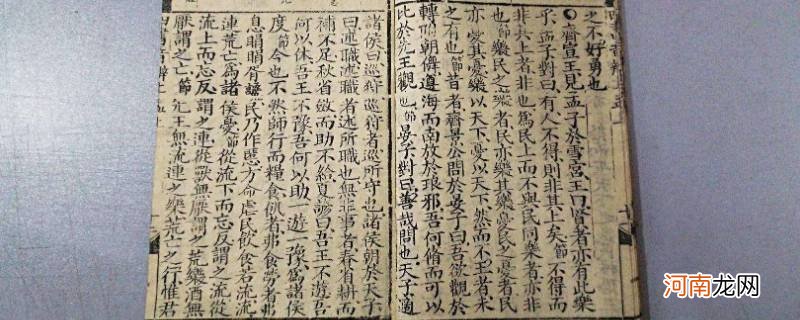 之不好勇也
○齊宣王見孟子於雪宮王曰賢者亦有此樂
乎孟子對曰有人不得則非其上矣節不得而
非其上者非也爲民上而不與民同樂者亦非
也節樂民之樂者民亦樂其樂憂民之憂者民
亦憂其憂樂以天下憂以天下然而不王者未
之有也節昔者齊景公問於晏子曰吾欲觀於
轉附朝儛遵海而南放於琅邪吾何脩而可以
比於先王觀也節晏子對曰善哉問也天子適
諸侯曰巡狩巡狩者巡所守也諸侯朝於天子
曰述職述職者述所職也無非事者春省耕而
補不足秋省斂而助不給夏諺曰吾王不遊吾
何以休吾王不豫吾何以助一遊一豫爲諸侯
度節今也不然師行而糧食飢者弗食勞者弗
息睊睊胥讒民乃作慝方命虐民飲食若流流
連荒亡爲諸侯憂節從流下而忘反謂之流從
流上而忘反謂之連從獸無厭謂之荒樂酒無
厭謂之亡節先王無流連之樂荒亡之行惟君
河南龙网